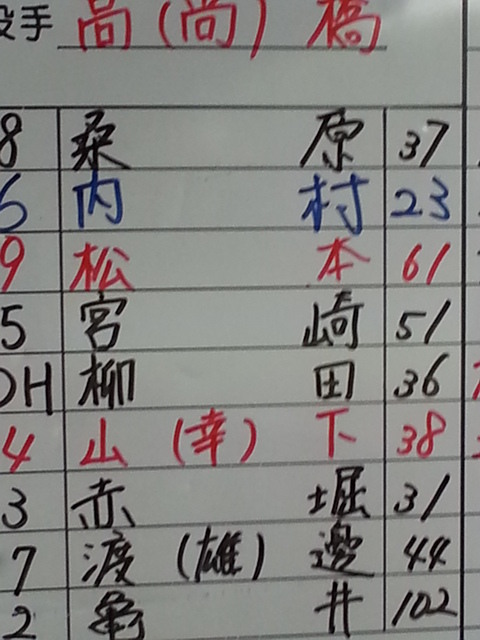 投手 高(尚)橋
8 桑原 37
6 内村 23
9 松本 61
5 宮崎 51
DH 柳田 36
4 山(幸)下 38
3 赤堀 31
7 渡(雄)邊 44
2 亀井 102